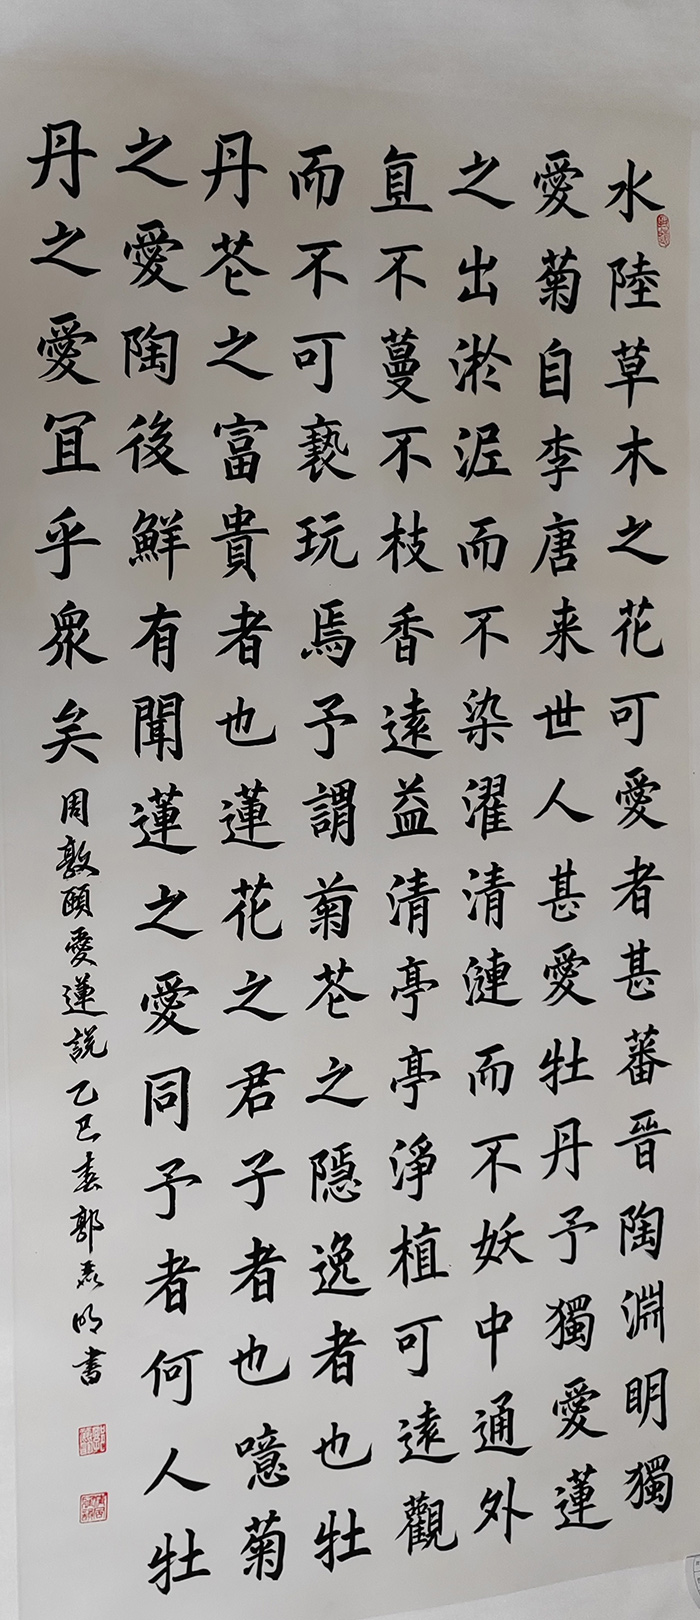 水陸草木之花可愛者甚蕃晉陶淵明獨
愛菊自李唐来世人甚愛牡丹予獨愛蓮
之出淤泥而不染濯清漣而不妖中通外
直不蔓不枝香遠益清亭亭淨植可遠觀
而不可褻玩焉予謂菊芲之隱逸者也牡
丹芲之富貴者也蓮花之君子者也噫菊
之愛陶後鮮有聞蓮之愛同予者何人牡
丹之愛冝乎衆矣周敦頤愛蓮説乙巳春郭明書